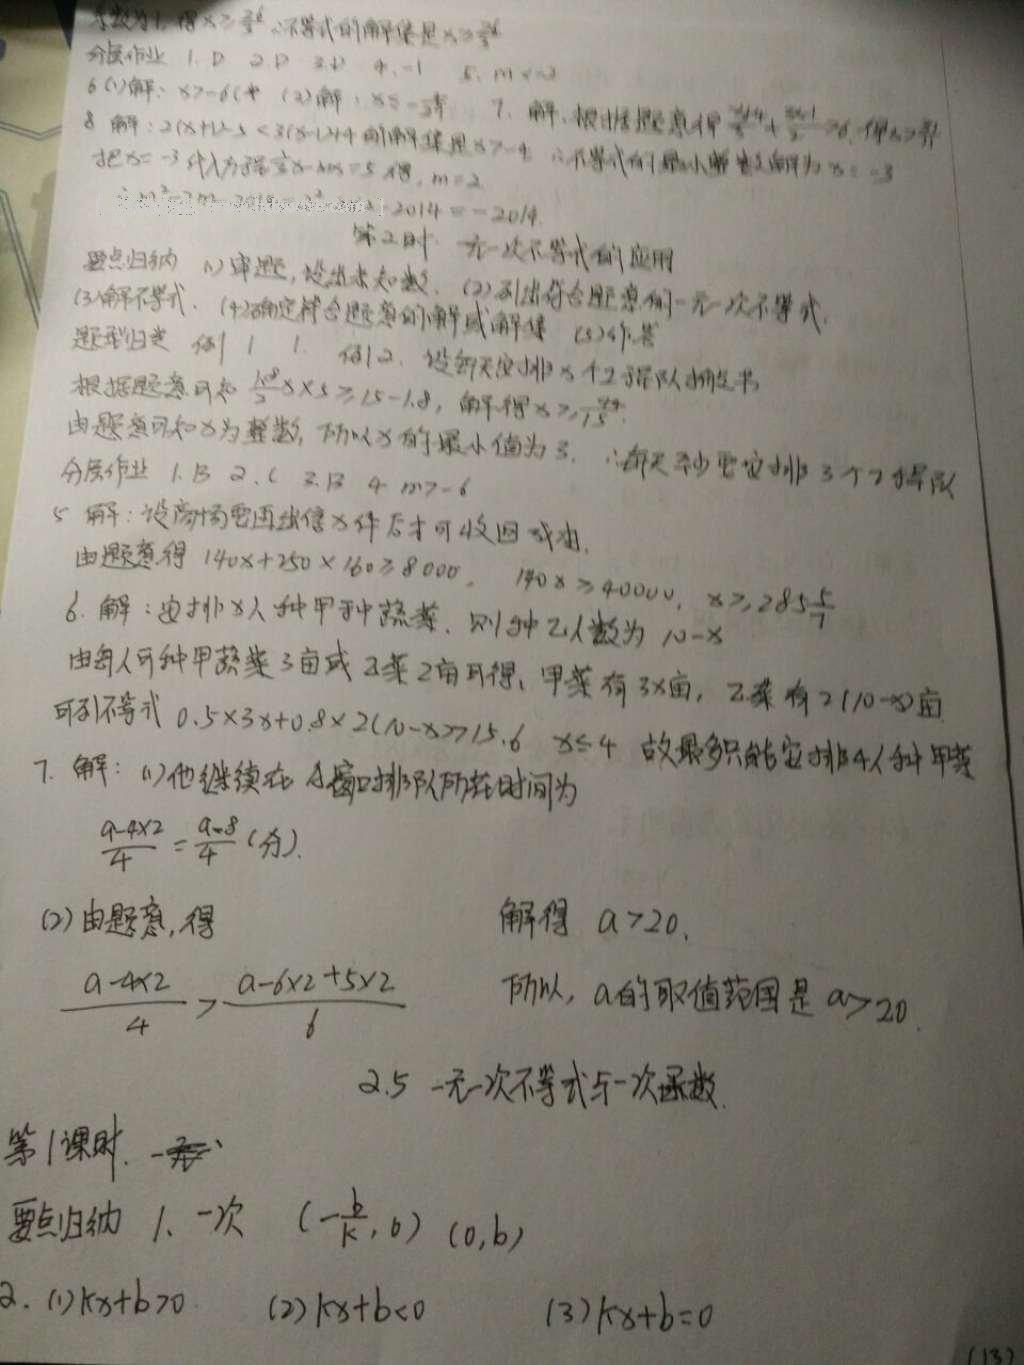 系数为1,得x≥ ∴不等式的解集是x≥
分层作业 1. D 2. D 3. D 4. -1 5. m<-2
6 (1)解: x>-6 (2)解: 7. 解:根据题意得
8 解: 2(x+1)-5<3(x-1)+4的解集是x>-4 ∴不等式的最小整数解为x=-3
把x=-3代入方程 =5得, m=2
2014=-2014
第2课时 一元一次不等式的应用
要点归纳 (1)审题,设出未知数. (2)列出符合题意的一元一次不等式.
(3)解不等式. (4)确定符合题意的解或解集 (5)作答
题型归类 例1 1. 例2. 设每天安排x个工程队
根据题意可知 x×5≥15-1.8, 解得x≥
由题意可知x为整数,所以x的最小值为3. ∴每天至少要安排3个工程队
分层作业 1. B 2. C 3. B 4 m>-6
5 解:设商场要再出售x件后才可收回成本.
由题意得 140x+250×160≥80000, 140x≥40000, x≥285 5/7
6. 解:安排x人种甲种蔬菜, 则种乙人数为10-x
由每人可种甲蔬菜3亩或乙菜2亩可得, 甲菜有3x亩, 乙菜有2(10-x)亩
可列不等式 0.5×3x+0.8×2(10-x)≥15.6 x≤4 故最多只能安排4人种甲菜
7. 解: (1)他继续在A窗口排队所花时间为
(a-4×2)/4 = (a-8)/4 (分).
(2)由题意,得 解得 a>20.
(a-4×2)/4 > (a-6×2+5×2)/6 所以, a的取值范围是a>20.
2.5 一元一次不等式与一次函数.
第1课时.
要点归纳 1、一次 (-b/k, 0) (0,b)
2. (1)kx+b>0 (2)kx+b<0 (3)kx+b=0
(13)